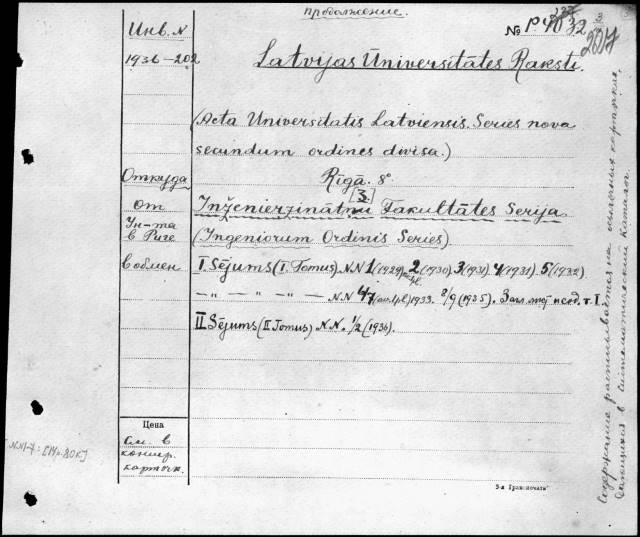 продолжение.
Инв. N
1936-202
№ Р 4032
237
3
2617
Latvijas Ūniversitātes Raksti.
(Acta Universitatis Latviensis. Series nova
secundum ordines divisa.)
Откуда
Rīgā. 8°
[3.]
от
Inženierzinātņu Fakultātes Serija
Ун-та
в Риге
(Ingeniorum Ordinis Series)
в обмен
I Sējums (I. Tomus) NN 1 (1929) 2 (1930) 3 (1931) 4 (1931) 5 (1932)
— " — " — " — N N 1933. 8/9 (1935). т. I.
II Sējums (II Tomus) N.N. 1/2 (1936).
Цена
см. в
контр.
карточк.
NN1-7: [14р. 80к]
3-я Гравпечать"
Содержание расписывается на основных карточках,
в Систематический каталог.